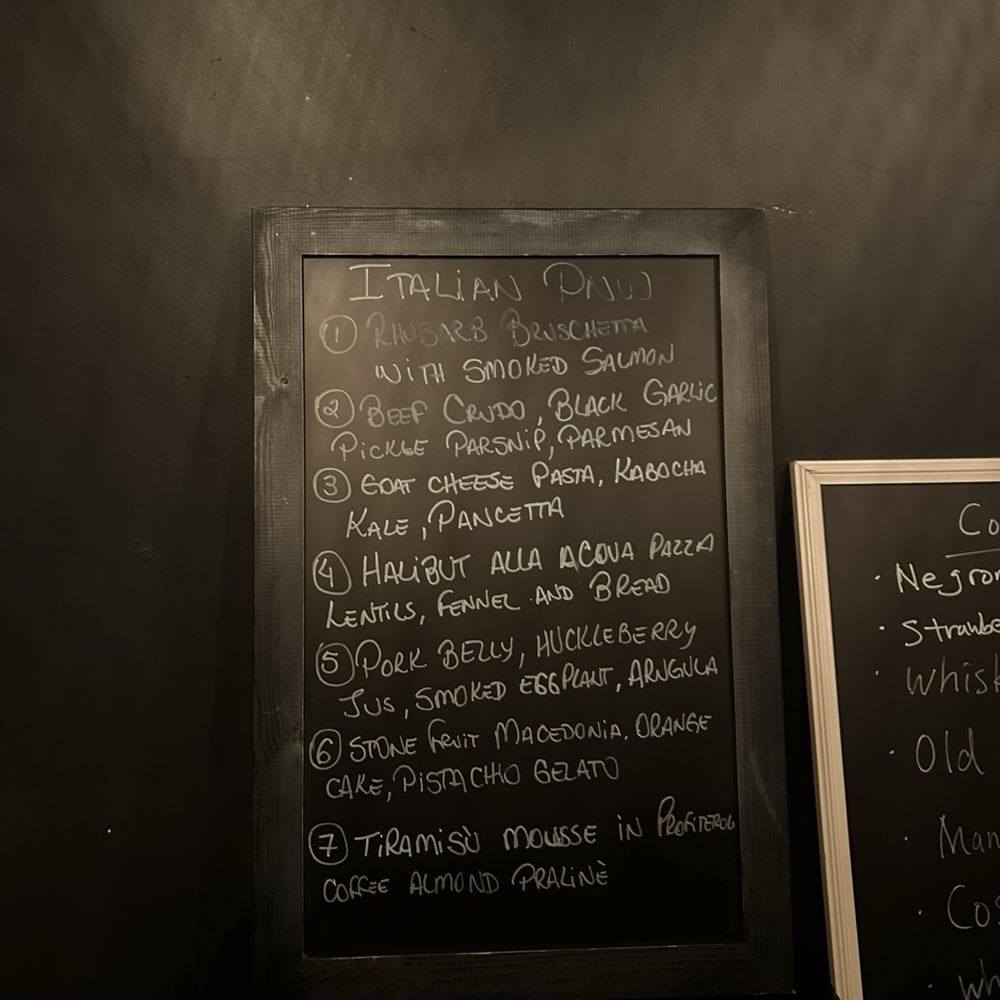 ITALIAN PNW
① RHUBARB BRUSCHETTA
WITH SMOKED SALMON
② BEEF CRUDO, BLACK GARLIC
PICKLE PARSNIP, PARMESAN
③ GOAT CHEESE PASTA, KABOCHA
KALE, PANCETTA
④ HALIBUT ALLA ACQUA PAZZA
LENTILS, FENNEL AND BREAD
⑤ PORK BELLY, HUCKLEBERRY
JUS, SMOKED EGGPLANT, ARUGULA
⑥ STONE FRUIT MACEDONIA. ORANGE
CAKE, PISTACHIO GELATO
⑦ TIRAMISÙ MOUSSE IN PROFITEROL
COFFEE ALMOND PRALINÈ
Co
· Negron
· Strawbe
· Whisk
· Old
· Man
· Cos
· wh